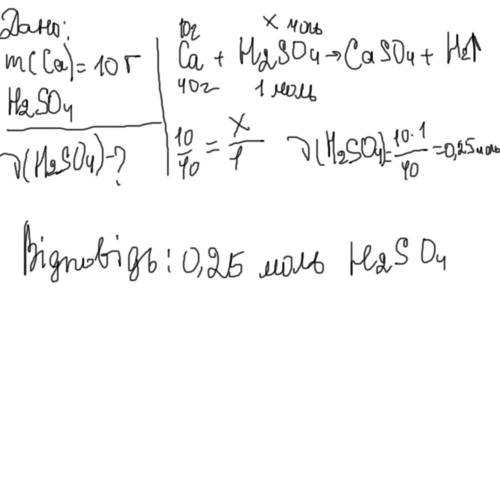 Дано:
m(Ca)=10г
H2SO4
ν(H2SO4)-?
10г x моль
Ca + H2SO4→CaSO4 + H2↑
40г 1 моль
10/40 = x/1 ν(H2SO4)=10·1/40=0,25моль
Відповідь: 0,25 моль H2SO4